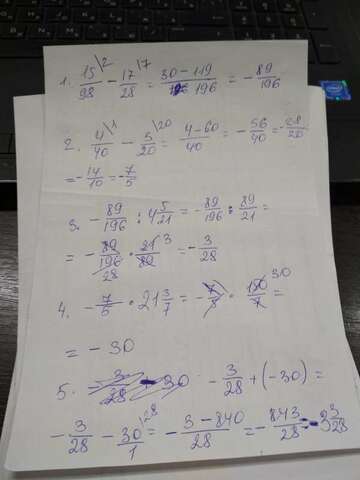 1. 15\2/98 - 17\7/28 = 30-119/196 196 = - 89/196
2. 4\1/40 - 3\20/20 = 4-60/40 = - 56/40 = - 28/20
= - 14/10 = - 7/5
3. - 89/196 : 4 5/21 = - 89/196 : 89/21 =
= - 89/196 28 · 21 3/89 = - 3/28
4. - 7/5 · 21 3/7 = - 7/5 · 150 30/7 =
= - 30
5. - 3/28 - 30 - 3/28 + (-30) =
- 3/28 - 30\28/1 = - 3-840/28 = - 843/28 = - 3 3/28